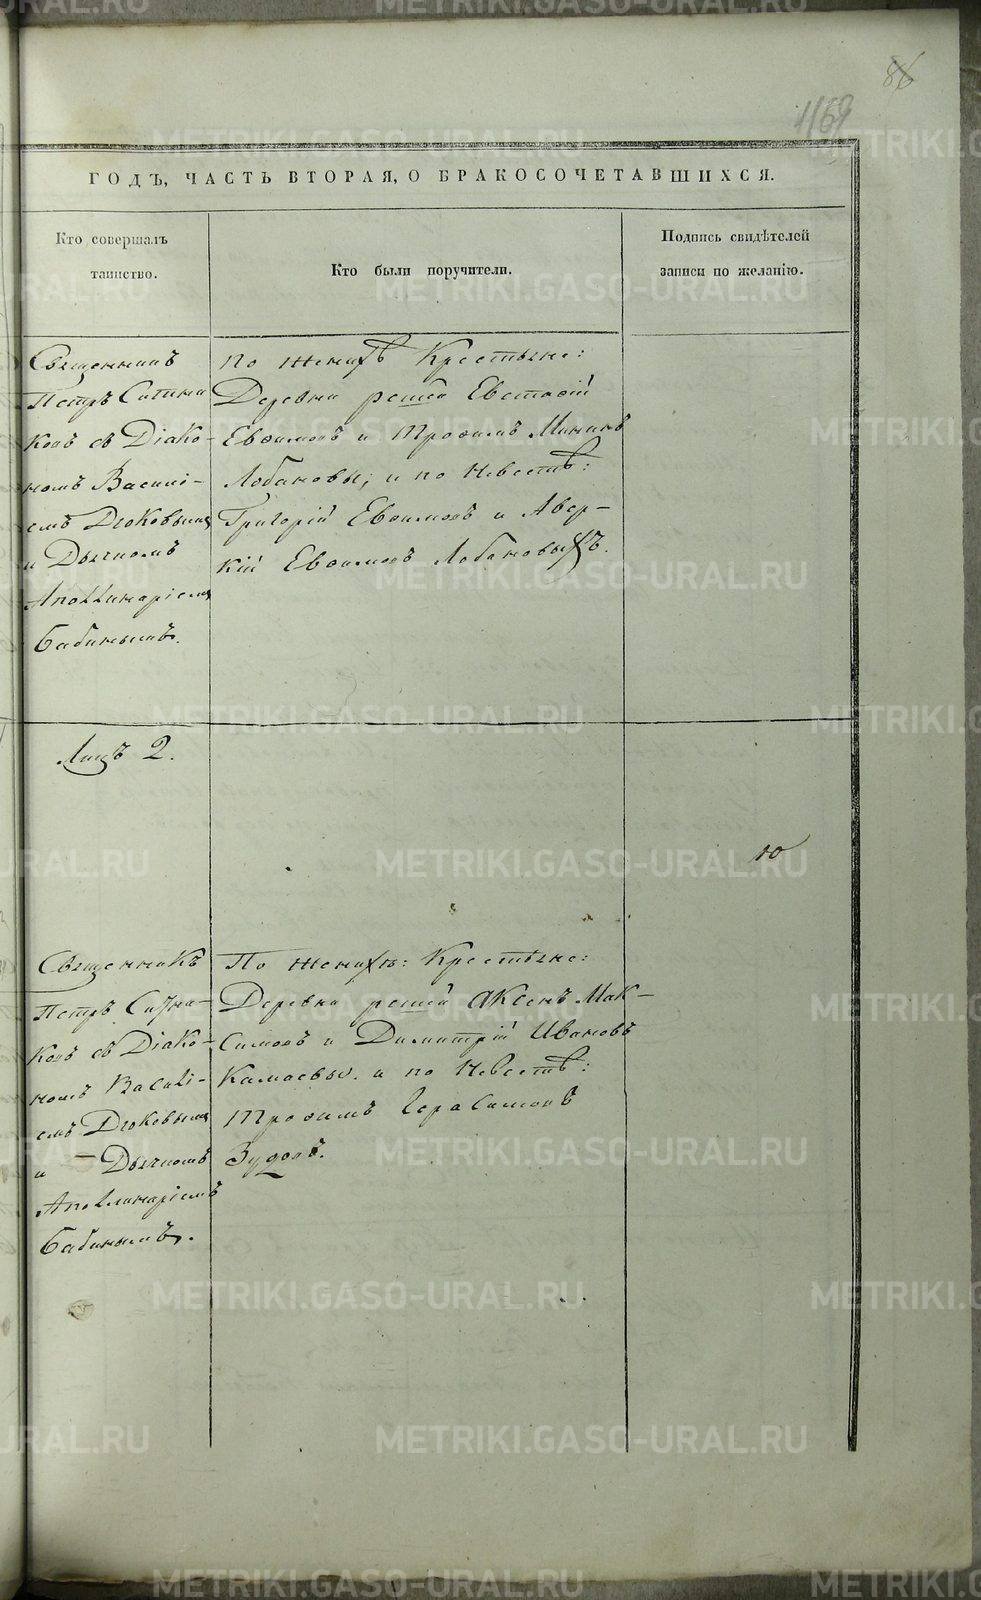 86
1169
ГОДЪ, ЧАСТЬ ВТОРАЯ, О БРАКОСОЧЕТАВШИХСЯ.
Кто совершалъ
таинство.
Кто были поручители.
Подпись свидѣтелей
записи по желанію.
Священникъ
Петръ
ковъ съ Діако-
номъ Василі-
емъ Дюковымъ
и Дьячкомъ
Аполлинаріемъ
Бабинымъ.
По женихѣ Крестьяне:
Деревни решей Евстафій
Евфимовъ и Трофимъ Мининъ
Лобановы; и по Невестѣ:
Григорій Евфимовъ и Авер-
кій Евфимовъ Лобановыхъ.
Лицъ 2.
10
Священникъ
Петръ
ковъ съ Діако-
номъ Василі-
емъ Дюковымъ
и Дьячкомъ
Аполлинаріемъ
Бабинымъ.
По женихѣ: Крестьяне:
Деревни решей Аксенъ Мак-
симовъ и Димитрій Ивановъ
Камаевы. и по Невестѣ:
Трофимъ Герасимовъ
Зудовъ.
METRIKI.GASO-URAL.RU